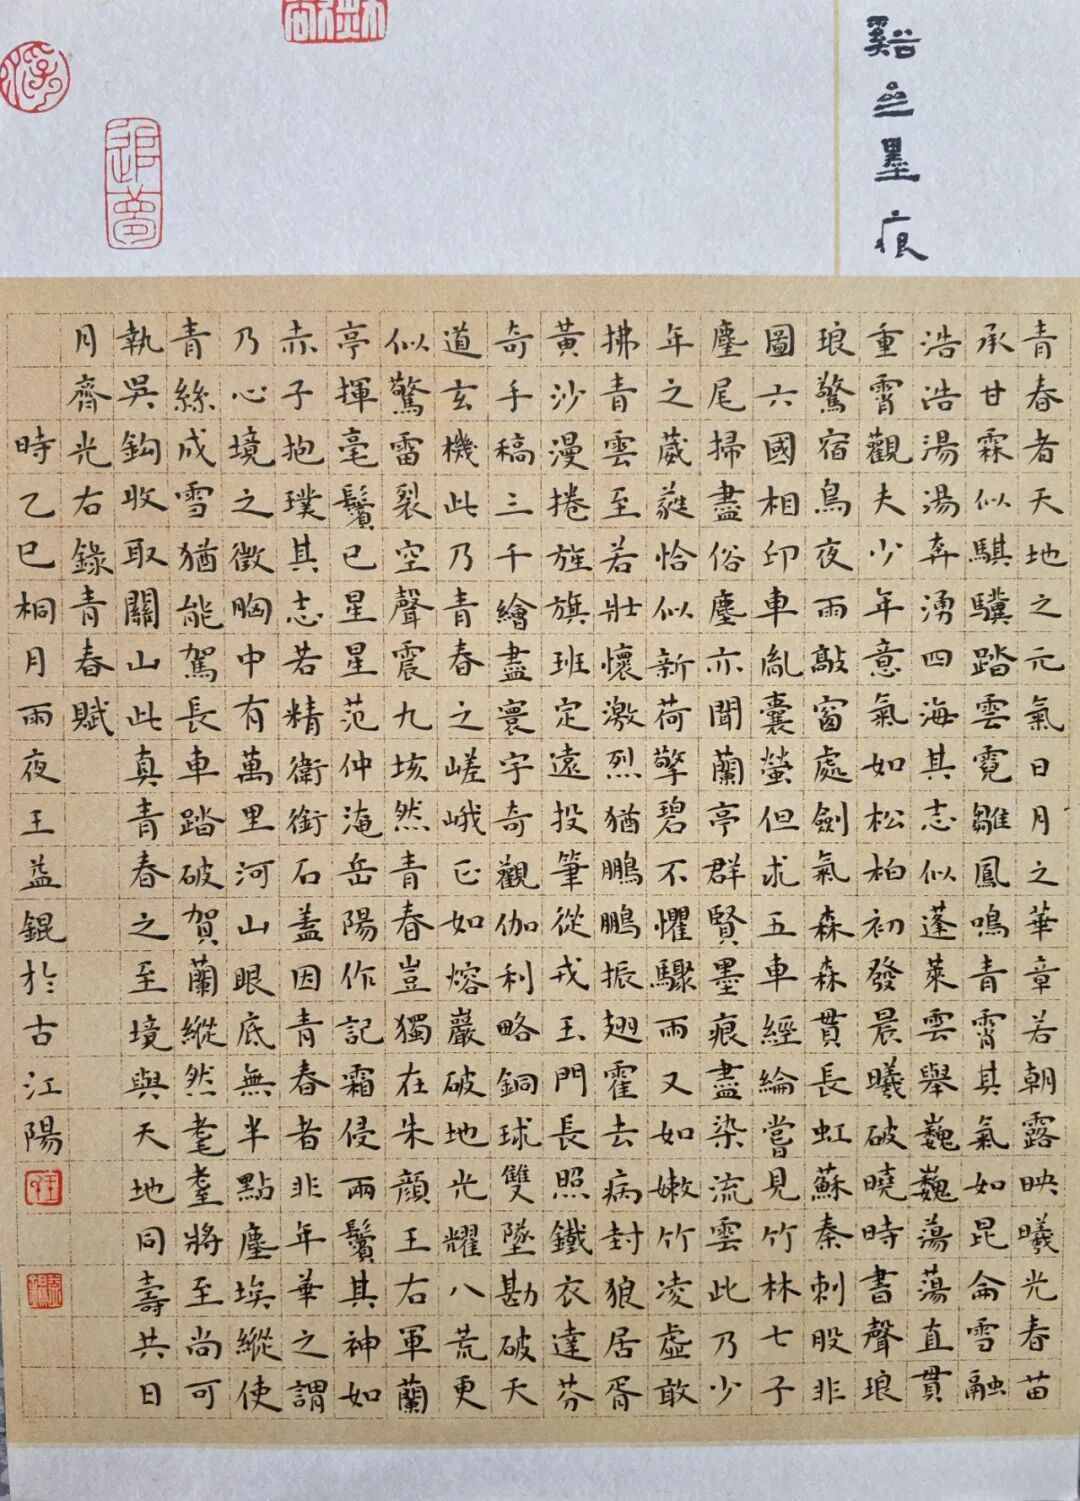 谿墨痕
追夢
青春者天地之元氣日月之華章若朝露映曦光春苗
承甘霖似騏驥踏雲霓雛鳳鳴青霄其氣如昆侖雪融
浩浩湯湯奔湧四海其志似蓬萊雲舉巍巍蕩蕩直貫
重霄觀夫少年意氣如松柏初發晨曦破曉時書聲琅
琅驚宿鳥夜雨敲窗處劍氣森森貫長虹蘇秦刺股非
圖六國相印車胤囊螢但求五車經綸嘗見竹林七子
麈尾掃盡俗塵亦聞蘭亭群賢墨痕盡染流雲此乃少
年之葳蕤恰似新荷擎碧不懼驟雨又如嫩竹凌虛敢
拂青雲至若壯懷激烈猶鵬鵬振翅霍去病封狼居胥
黃沙漫捲旌旗班定遠投筆從戎玉門長照鐵衣達芬
奇手稿三千繪盡寰宇奇觀伽利略銅球雙墜勘破天
道玄機此乃青春之嵯峨正如熔巖破地光耀八荒更
似驚雷裂空聲震九垓然青春豈獨在朱顏王右軍蘭
亭揮毫鬢已星星范仲淹岳陽作記霜侵兩鬢其神如
赤子抱璞其志若精衛銜石蓋因青春者非年華之謂
乃心境之徵胸中有萬里河山眼底無半點塵埃縱使
青絲成雪猶能駕長車踏破賀蘭縱然耄耋將至尚可
執吳鈎收取關山此真青春之至境與天地同壽共日
月齊光右錄青春賦
時乙巳桐月雨夜王益錕於古江陽